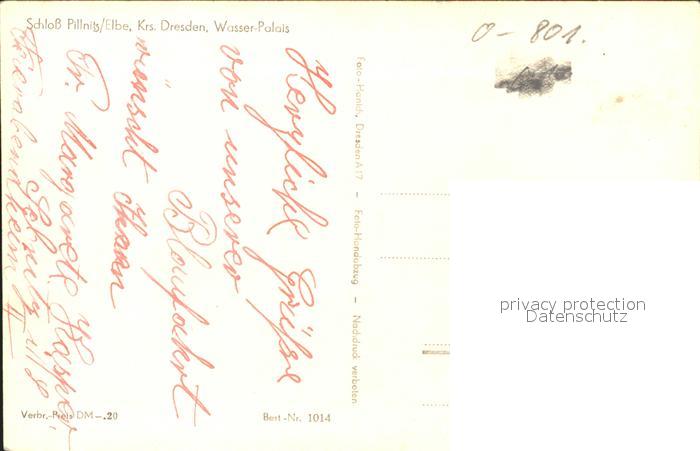 Schloß Pillnitz/Elbe, Krs. Dresden, Wasser-Palais
0-801.
Herzliche Grüße
von unserer
Blaufahrt
wünscht Ihnen
Fr. Margarete Kasper
Sebnitz i/S.
Feierabendheim II
Foto-Hanich, Dresden A 17 – Foto-Handabzug – Nachdruck verboten
Verbr.-Preis DM -.20
Best.-Nr. 1014
privacy protection
Datenschutz